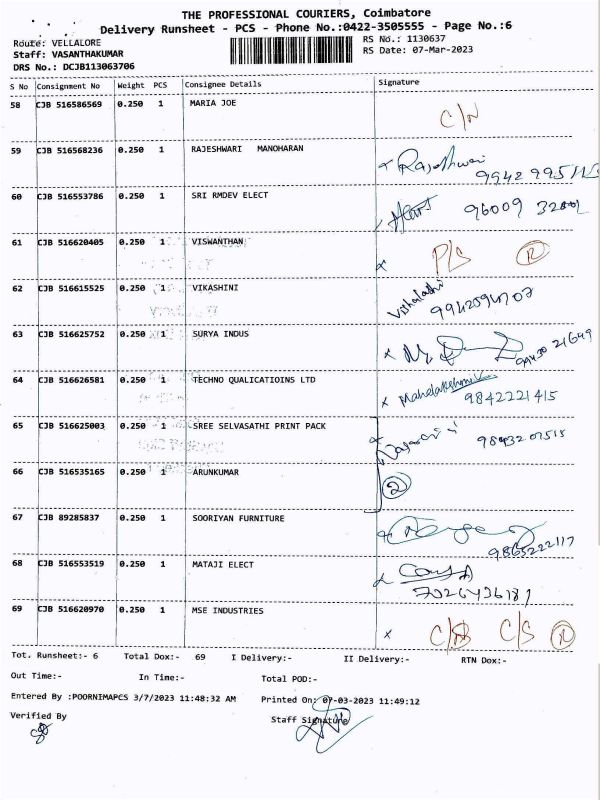 THE PROFESSIONAL COURIERS, Coimbatore
Delivery Runsheet - PCS - Phone No.:0422-3505555 - Page No.:6
Route: VELLALORE
RS No.: 1130637
Staff: VASANTHAKUMAR
RS Date: 07-Mar-2023
DRS No.: DCJB113063706
S No Consignment No Weight PCS Consignee Details Signature
58 CJB 516586569 0.250 1 MARIA JOE C/N
59 CJB 516568236 0.250 1 RAJESHWARI MANOHARAN Rajeshwari
60 CJB 516553786 0.250 1 SRI RMDEV ELECT 96009
61 CJB 516620405 0.250 1 VISWANTHAN P/S R
62 CJB 516615525 0.250 1 VIKASHINI
63 CJB 516625752 0.250 1 SURYA INDUS 99430 21649
64 CJB 516626581 0.250 1 TECHNO QUALICATIOINS LTD 9842221415
65 CJB 516625003 0.250 1 SREE SELVASATHI PRINT PACK
66 CJB 516535165 0.250 1 ARUNKUMAR 2
67 CJB 89285837 0.250 1 SOORIYAN FURNITURE 9865222117
68 CJB 516553519 0.250 1 MATAJI ELECT
69 CJB 516620970 0.250 1 MSE INDUSTRIES C/S R
Tot. Runsheet:- 6 Total Dox:- 69 I Delivery:- II Delivery:- RTN Dox:-
Out Time:- In Time:- Total POD:-
Entered By :POORNIMAPCS 3/7/2023 11:48:32 AM Printed On: 07-03-2023 11:49:12
Verified By Staff Signature